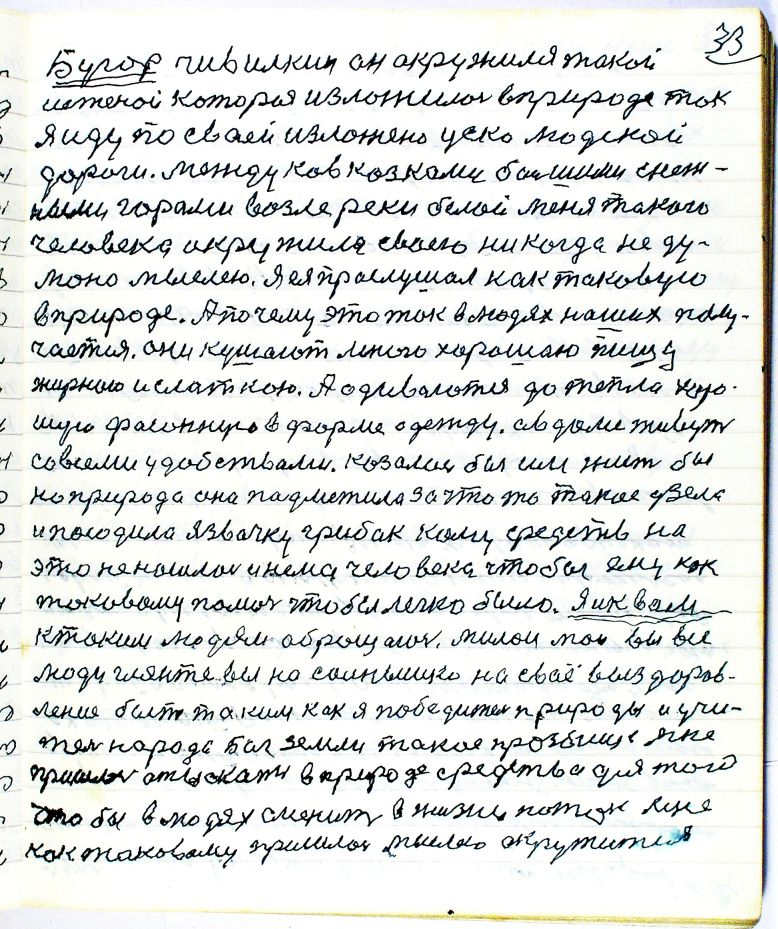 33
Бугор чивилкин он окружился такой
истеной которая изложилась в природе так
я иду по своей изложено узко людской
дороги. между ковкозкаму большими снеж-
ными горами возле реки белой меня такого
человека окружила своею никогда не ду-
моно мыслею. Я ея прослушал как таковую
в природе. А почему это так в людях наших полу-
чается. они кушают много хорошаю пищу
жирною и слаткою. А одеваются до тепла хоро-
шую фасонную в форме одежду. сядоми живут
совсеми удобствами. козалось бы им жит бы
но природа она падметила за что то такое взела
и посодила язвачку грыбак кому средств на
это не нашлось и нема человека чтобы ему как
таковому помоч чтобы легко было. Я и к вам
к таким людям оброщаюсь. милои мои вы все
люди гляньте вы на солнышко на своё выздоров-
ление быть таким как я победител природы и учи-
тел народа бог земли такое прозвище мне
пришлось отыскать в природе средства для того
что бы в людях сменить в жизни поток мне
как таковому пришлось мыслею окружится